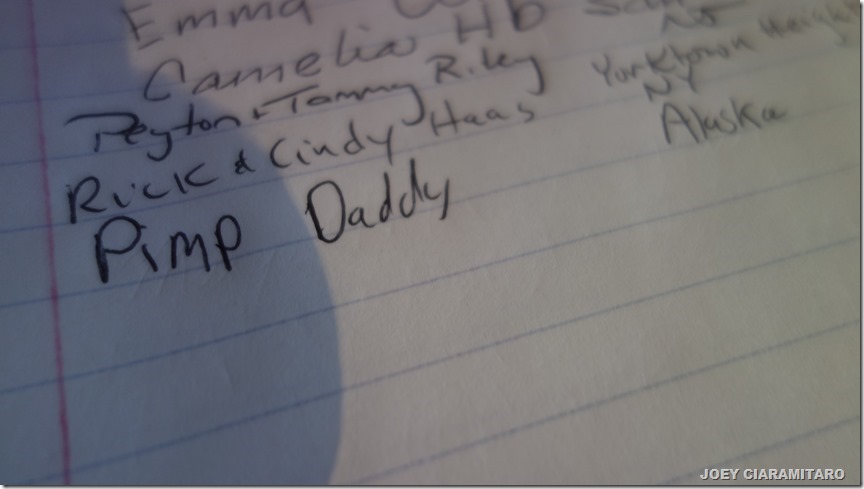 Emma
Camelia Hb
Peyton + Tommy Riley Yorktown Heights NY
Rick & Cindy Haas Alaska
Pimp Daddy
JOEY CIARAMITARO